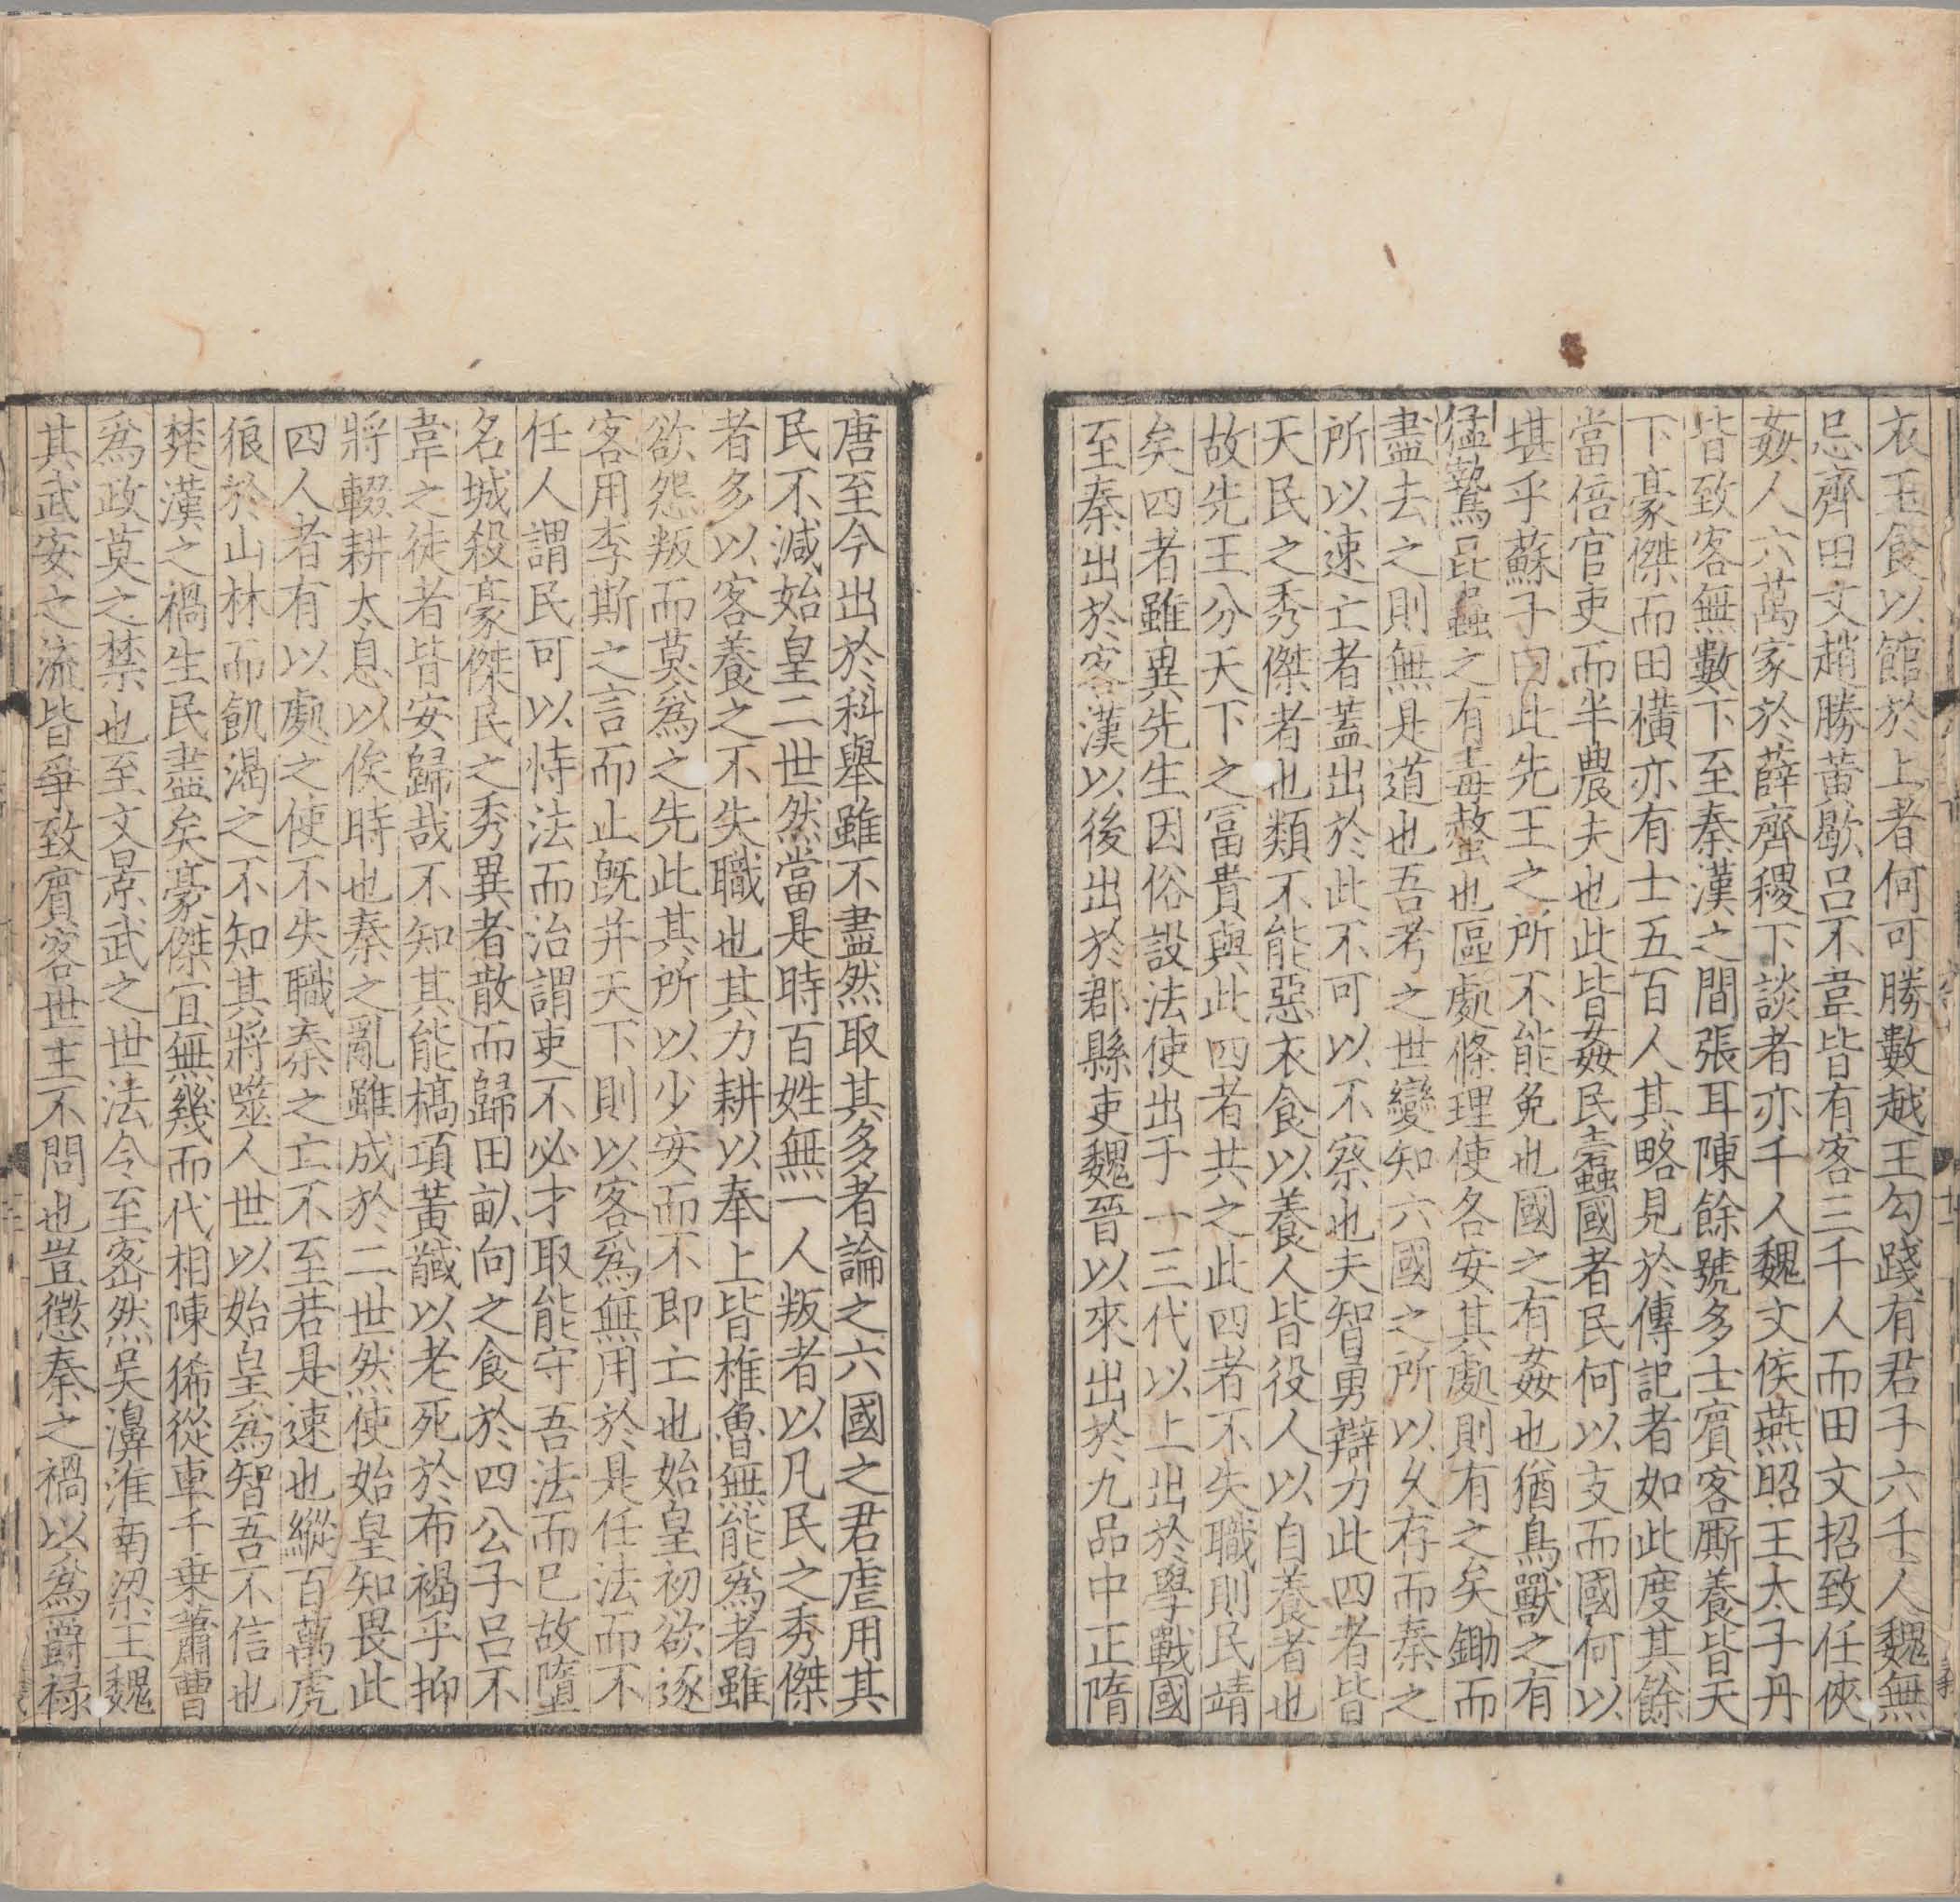 衣玉食以館於上者何可勝數越王勾踐有君子六千人魏無
忌齊田文趙勝黃歇呂不韋皆有客三千人而田文招致任俠
姦人六萬家於薛齊稷下談者亦千人魏文侯燕昭王太子丹
皆致客無數下至秦漢之間張耳陳餘號多士賓客厮養皆天
下豪傑而田橫亦有士五百人其略見於傳記者如此度其餘
當倍官吏而半農夫也此皆姦民蠹國者民何以支而國何以
堪乎蘇子曰此先王之所不能免也國之有姦也猶鳥獸之有
猛鷙昆蟲之有毒螫也區處條理使各安其處則有之矣鋤而
盡去之則無是道也吾考之世變知六國之所以久存而秦之
所以速亡者蓋出於此不可以不察也夫智勇辯力此四者皆
天民之秀傑者也類不能惡衣食以養人皆役人以自養者也
故先王分天下之冨貴與此四者共之此四者不失職則民靖
矣四者雖異先生因俗設法使出于一三代以上出於學戰國
至秦出於客漢以後出於郡縣吏魏晉以來出於九品中正隋
唐至今出於科舉雖不盡然取其多者論之六國之君虐用其
民不減始皇二世然當是時百姓無一人叛者以凡民之秀傑
者多以客養之不失職也其力耕以奉上皆椎魯無能爲者雖
欲怨叛而莫爲之先此其所以少安而不即亡也始皇初欲逐
客用李斯之言而止旣并天下則以客爲無用於是任法而不
任人謂民可以恃法而治謂吏不必才取能守吾法而已故墮
名城殺豪傑民之秀異者散而歸田畝向之食於四公子呂不
韋之徒者皆安歸哉不知其能槁項黃馘以老死於布褐乎抑
將輟耕太息以俟時也秦之亂雖成於二世然使始皇知畏此
四人者有以處之使不失職秦之亡不至若是速也縱百萬虎
狼於山林而飢渴之不知其將噬人世以始皇爲智吾不信也
楚漢之禍生民盡矣豪傑宜無幾而代相陳豨從車千乗蕭曹
爲政莫之禁也至文景武之世法令至密然吳濞淮南梁王魏
其武安之流皆爭致賓客世主不問也豈懲秦之禍以爲爵禄